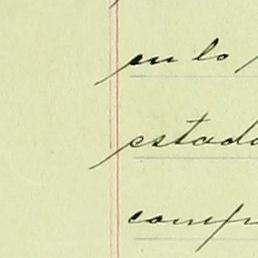 en lo
estad
comp